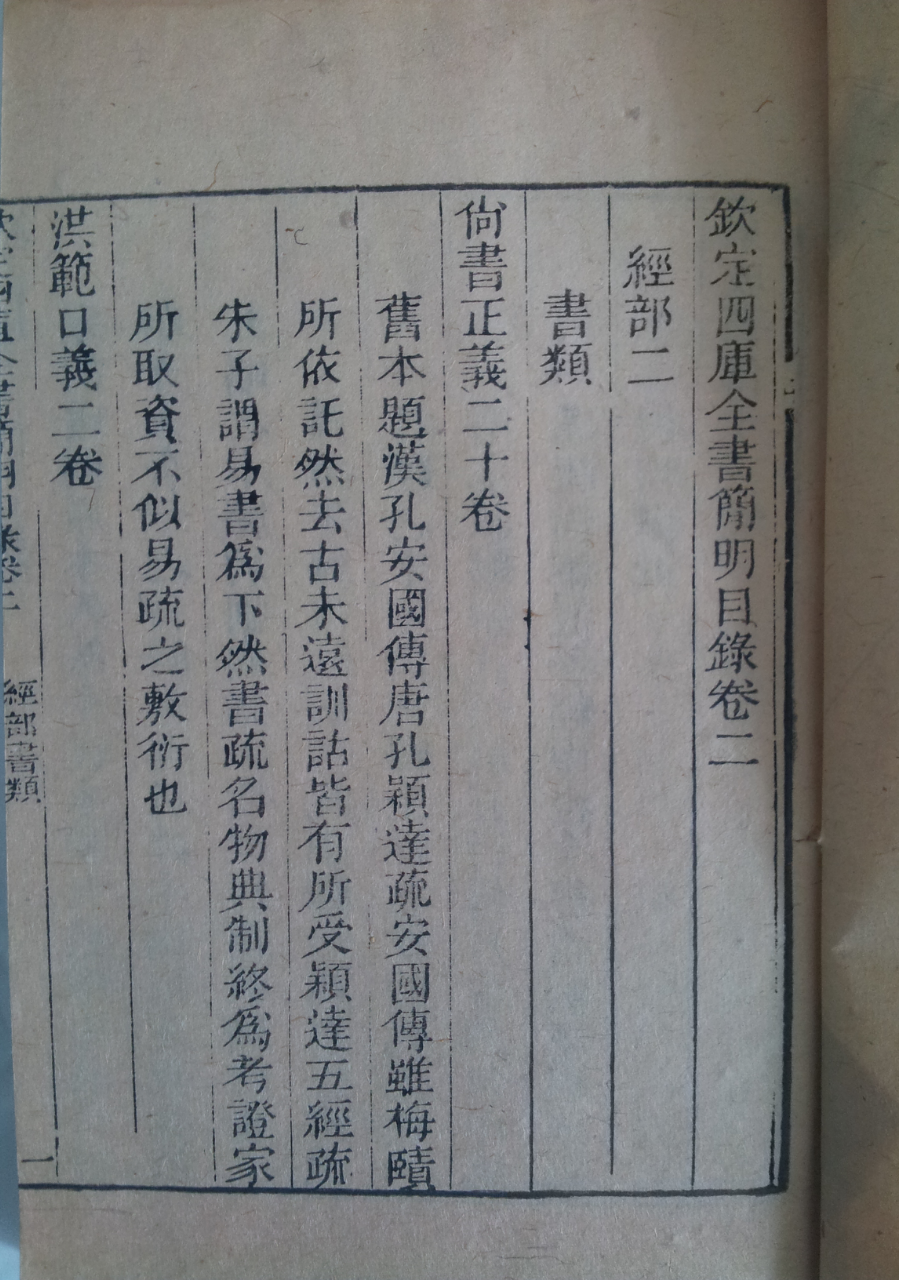 欽定四庫全書簡明目錄卷二
經部二
書類
尙書正義二十卷
舊本題漢孔安國傳唐孔穎達疏安國傳雖梅賾
所依託然去古未遠訓詁皆有所受穎達五經疏
朱子謂易書爲下然書疏名物典制終爲考證家
所取資不似易疏之敷衍也
洪範口義二卷
欽定四庫全書簡明目錄卷二
經部書類
一